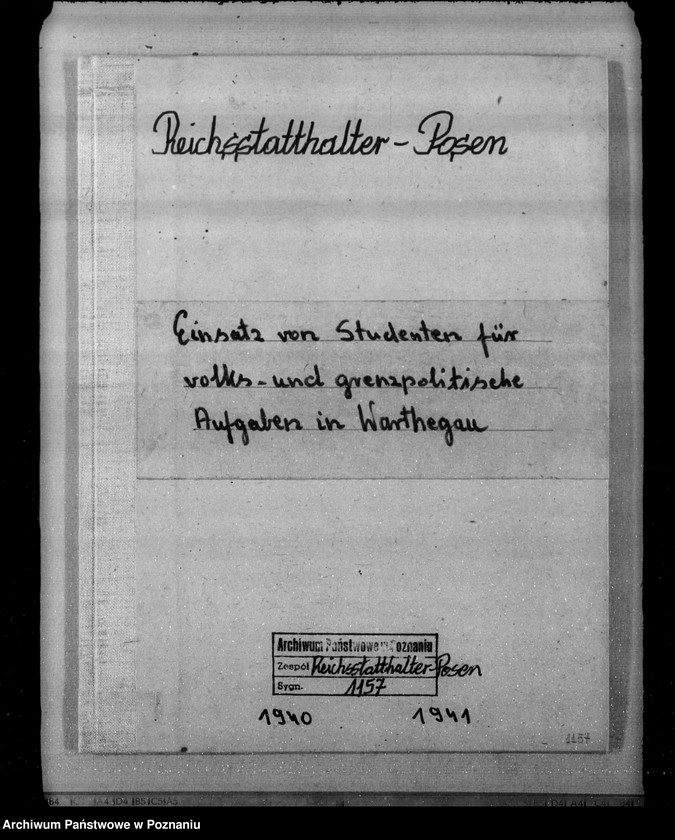 Reichsstatthalter - Posen
Einsatz von Studenten für
volks- und grenzpolitische
Aufgaben in Warthegau
Archiwum Państwowe w Poznaniu
Zespół Reichsstatthalter-Posen
Sygn. 1157
1940 1941
1157
A4 D4 B5 C5 A5
Archiwum Państwowe w Poznaniu